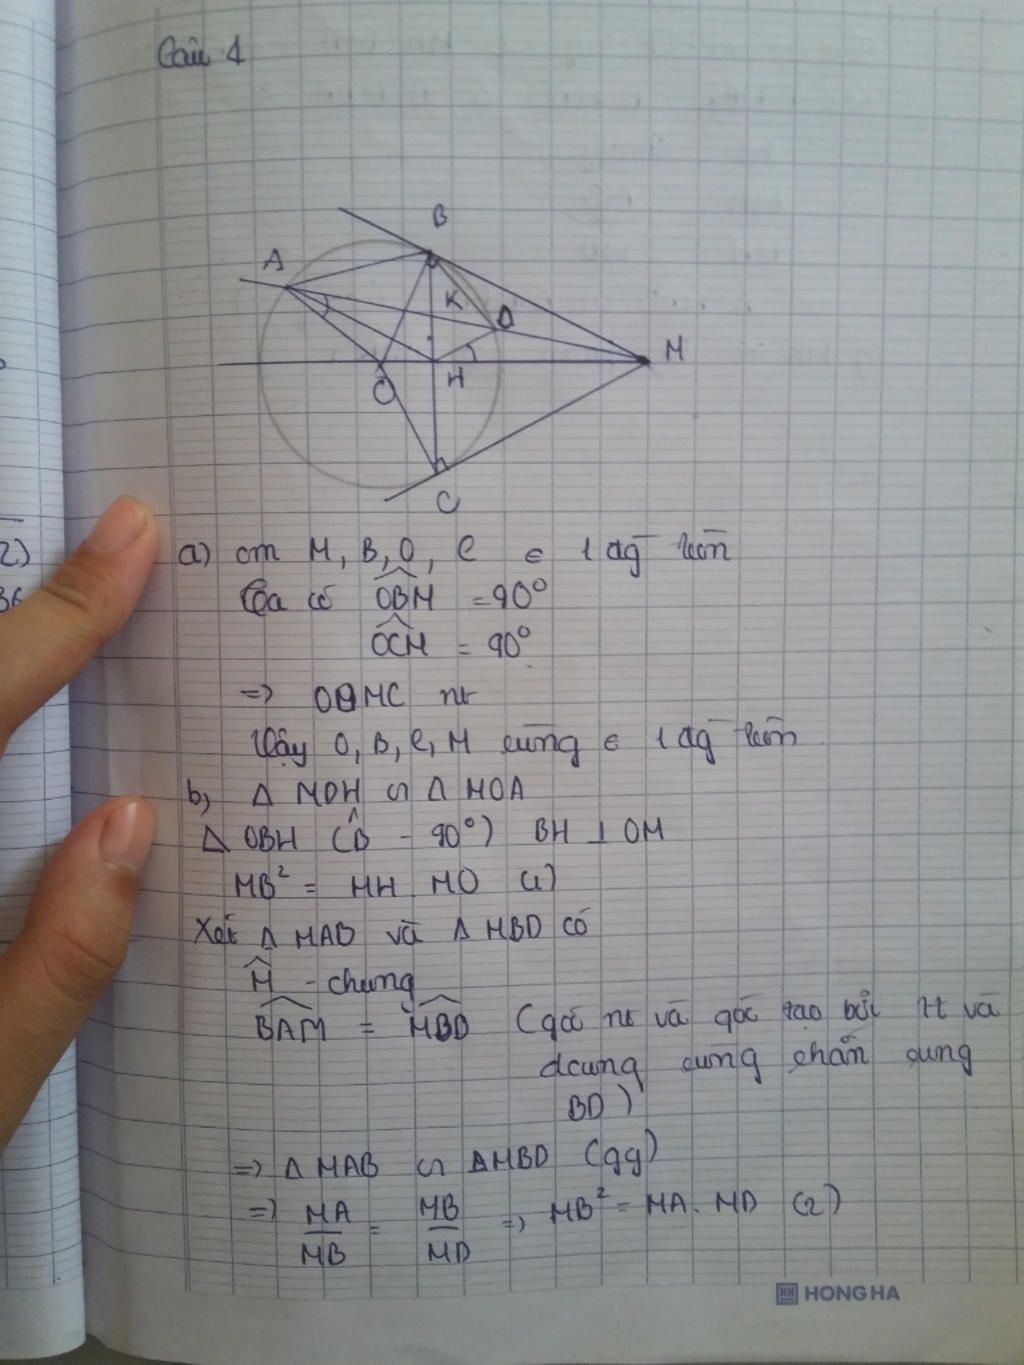 Câu 4
B
A
K
D
M
O
H
C
2)
36
a) cm M, B, O, C ∈ 1 đg tròn
Ta có OBM = 90°
OCM = 90°
=> OBMC nt
Vậy O, B, C, M cùng ∈ 1 đg tròn
b, Δ MDH ∽ Δ MOA
Δ OBM (B - 90°) BH ⊥ OM
MB² = MH. MO (1)
Xét Δ MAB và Δ MBD có
M - chung
BAM = MBD (góc nt và góc tạo bởi tt và
dcung cùng chắn cung
BD)
=> Δ MAB ∽ Δ MBD (gg)
=> MA/MB = MB/MD => MB² = MA. MD (2)
HH HONG HA